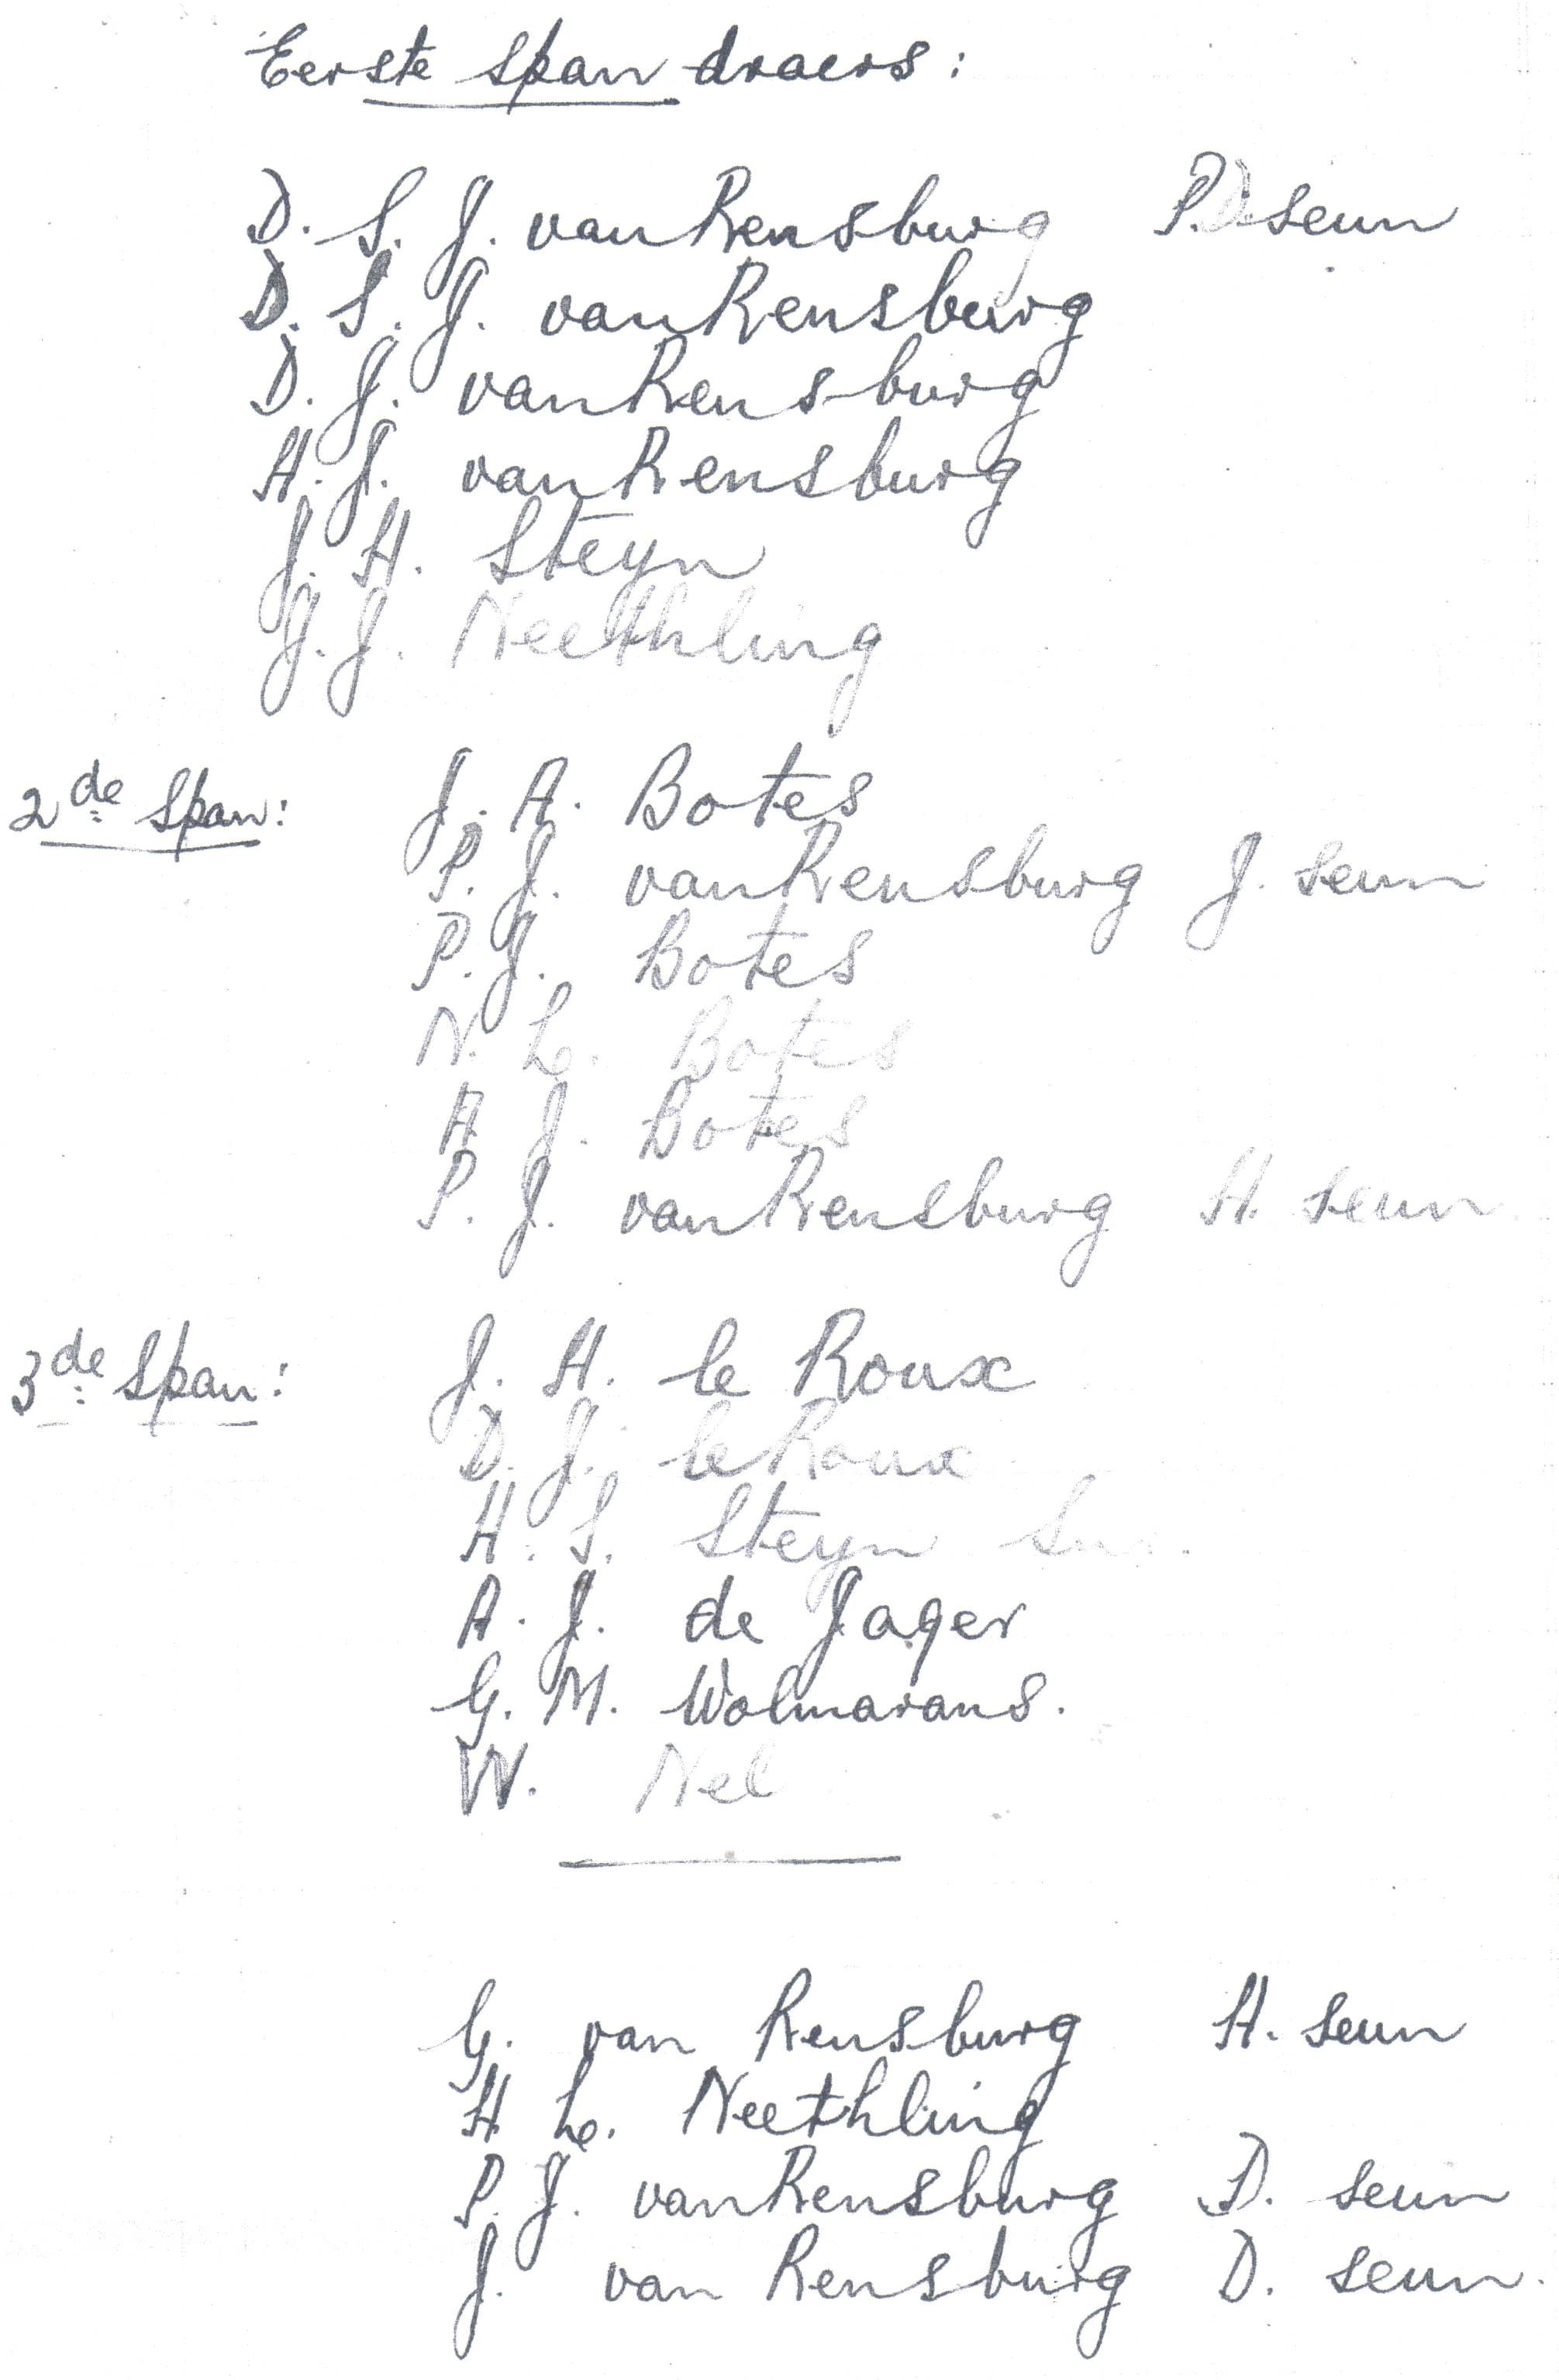 Eerste span draers:
D. S. J. van Rensburg P.D. seun
D. S. J. van Rensburg
D. J. van Rensburg
H. J. van Rensburg
J. H. Steyn
J. J. Neethling
2de Span: J. A. Botes
P. J. van Rensburg J. seun
P. J. Botes
N. L. Botes
A J. Botes
P. J. van Rensburg H. seun
3de Span: J. H. le Roux
D. J. le Roux
H. S. Steyn
A. J. de Jager
G. M. Wolmarans.
W. Nel
G. van Rensburg H. seun
H L. Neethling
P. J. van Rensburg D. seun
J. van Rensburg D. seun.